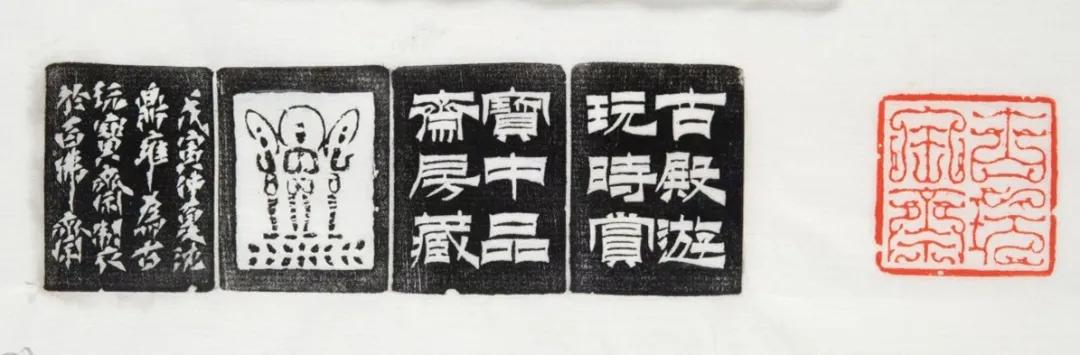 古玩
寶齋
古殿遊
玩時賞
寶中品
齋房藏
戊寅仲夏沈
鼎雍為古
玩寶齋制
於百佛齋